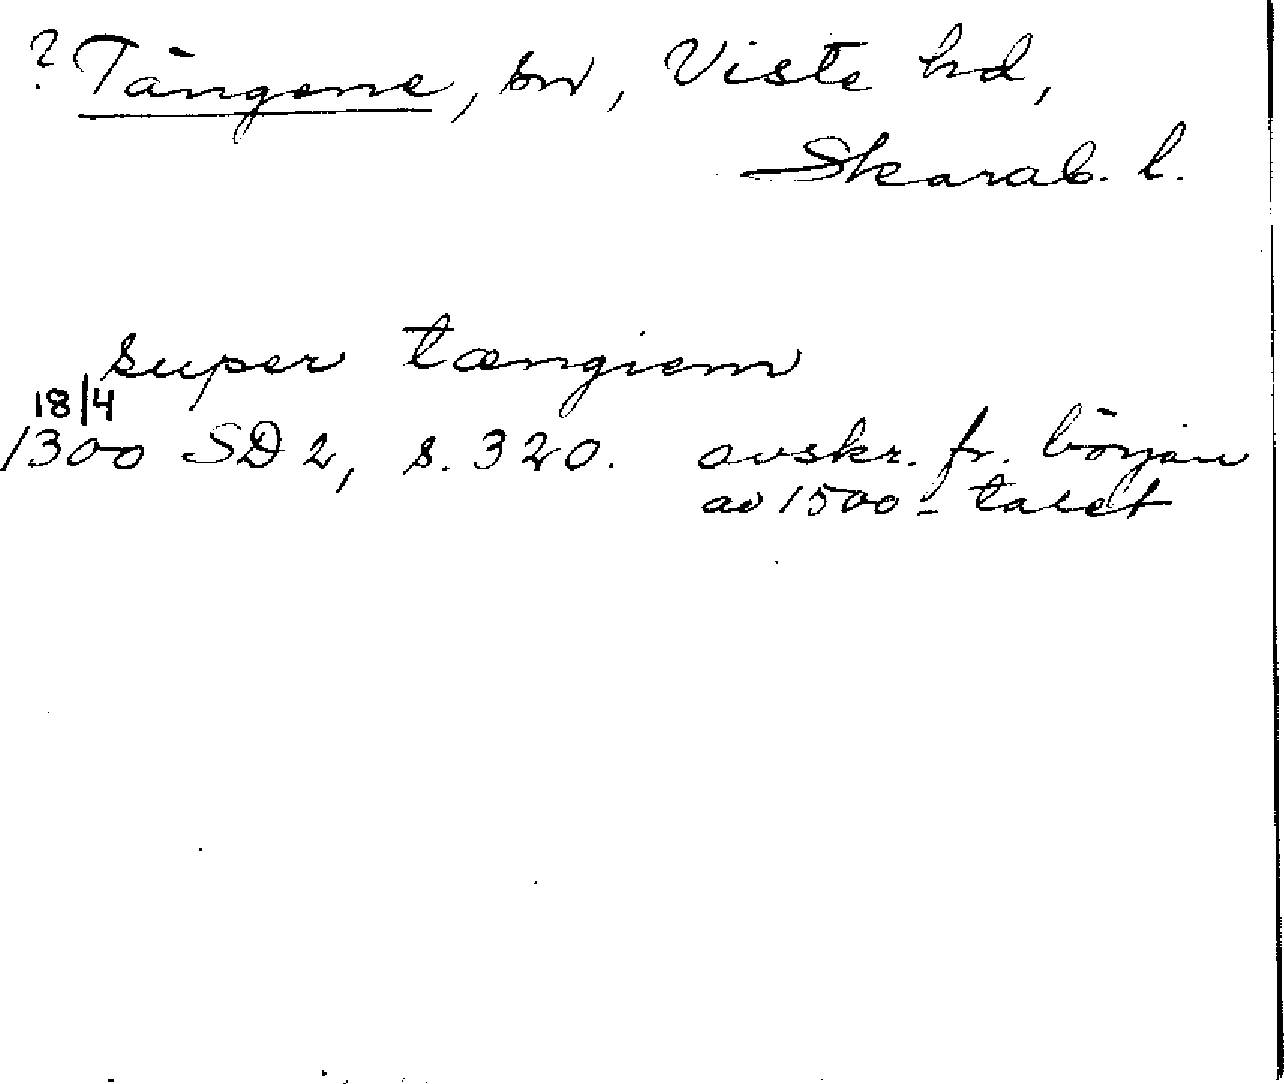 ? Tängene, sn, Viste hd,
Skarab. l.
super tængiem
18/4
1300 SD 2, s. 320. avskr. fr. början
av 1500-talet